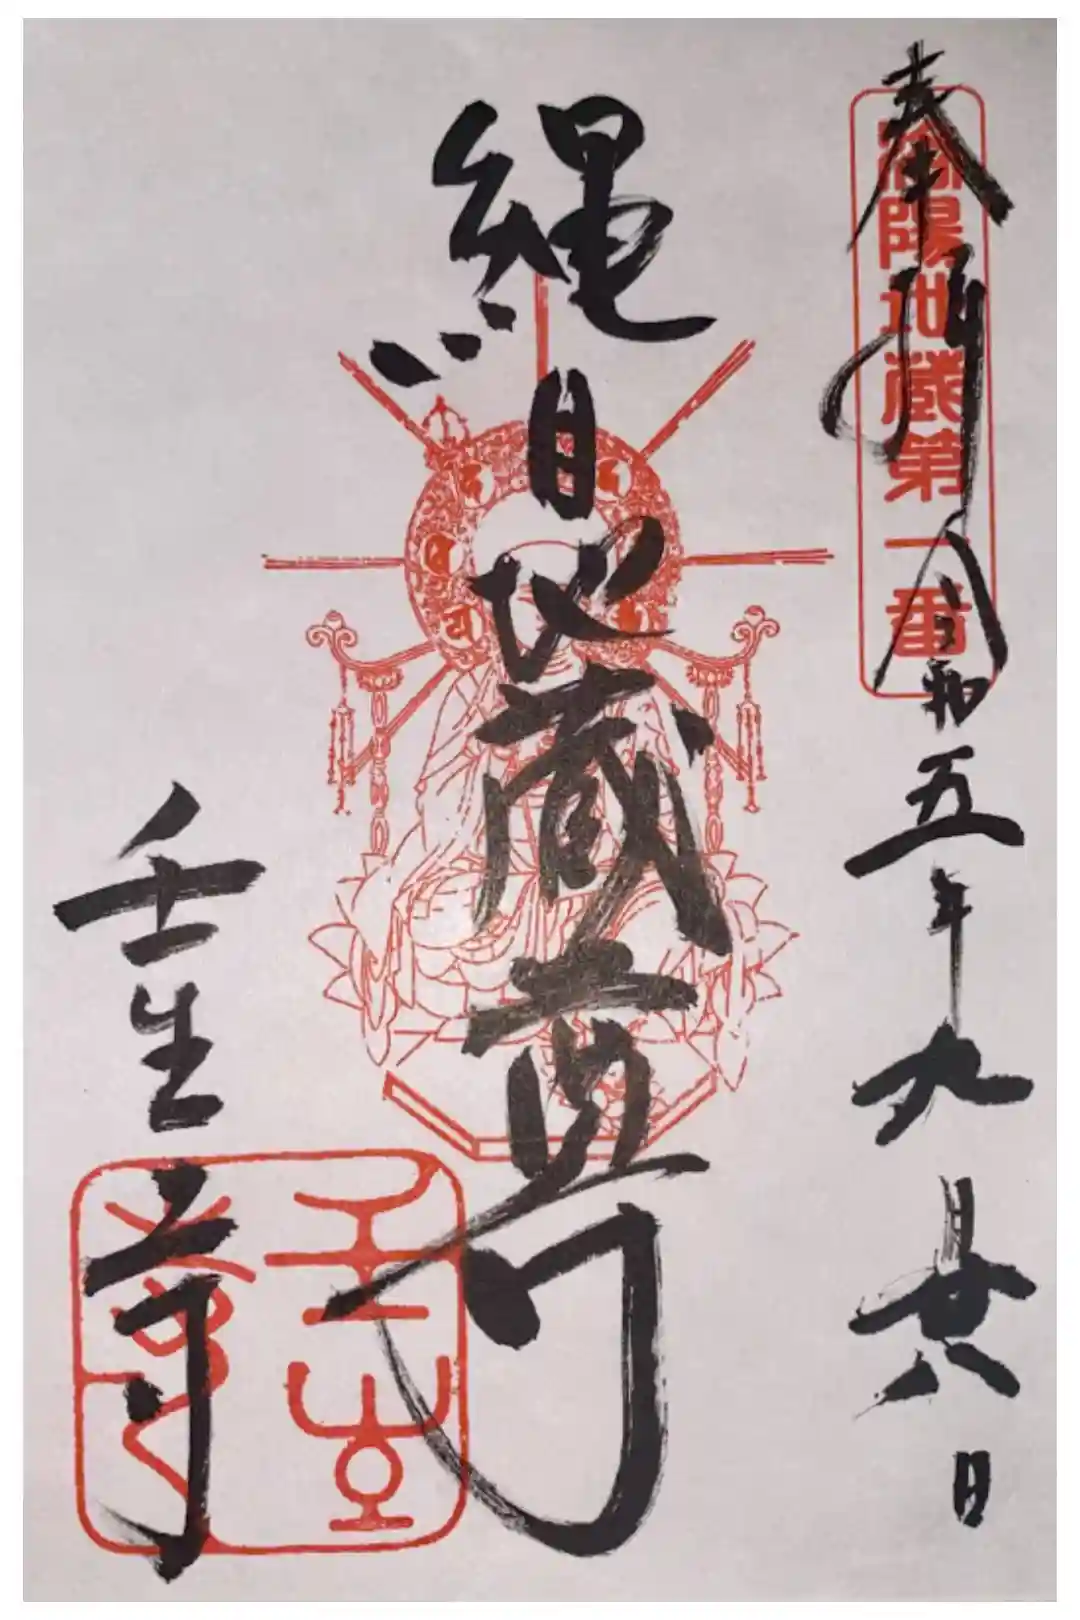 奉拝
洛陽地蔵第一番
令和五年九月廿八日
縄目地蔵尊
壬生寺